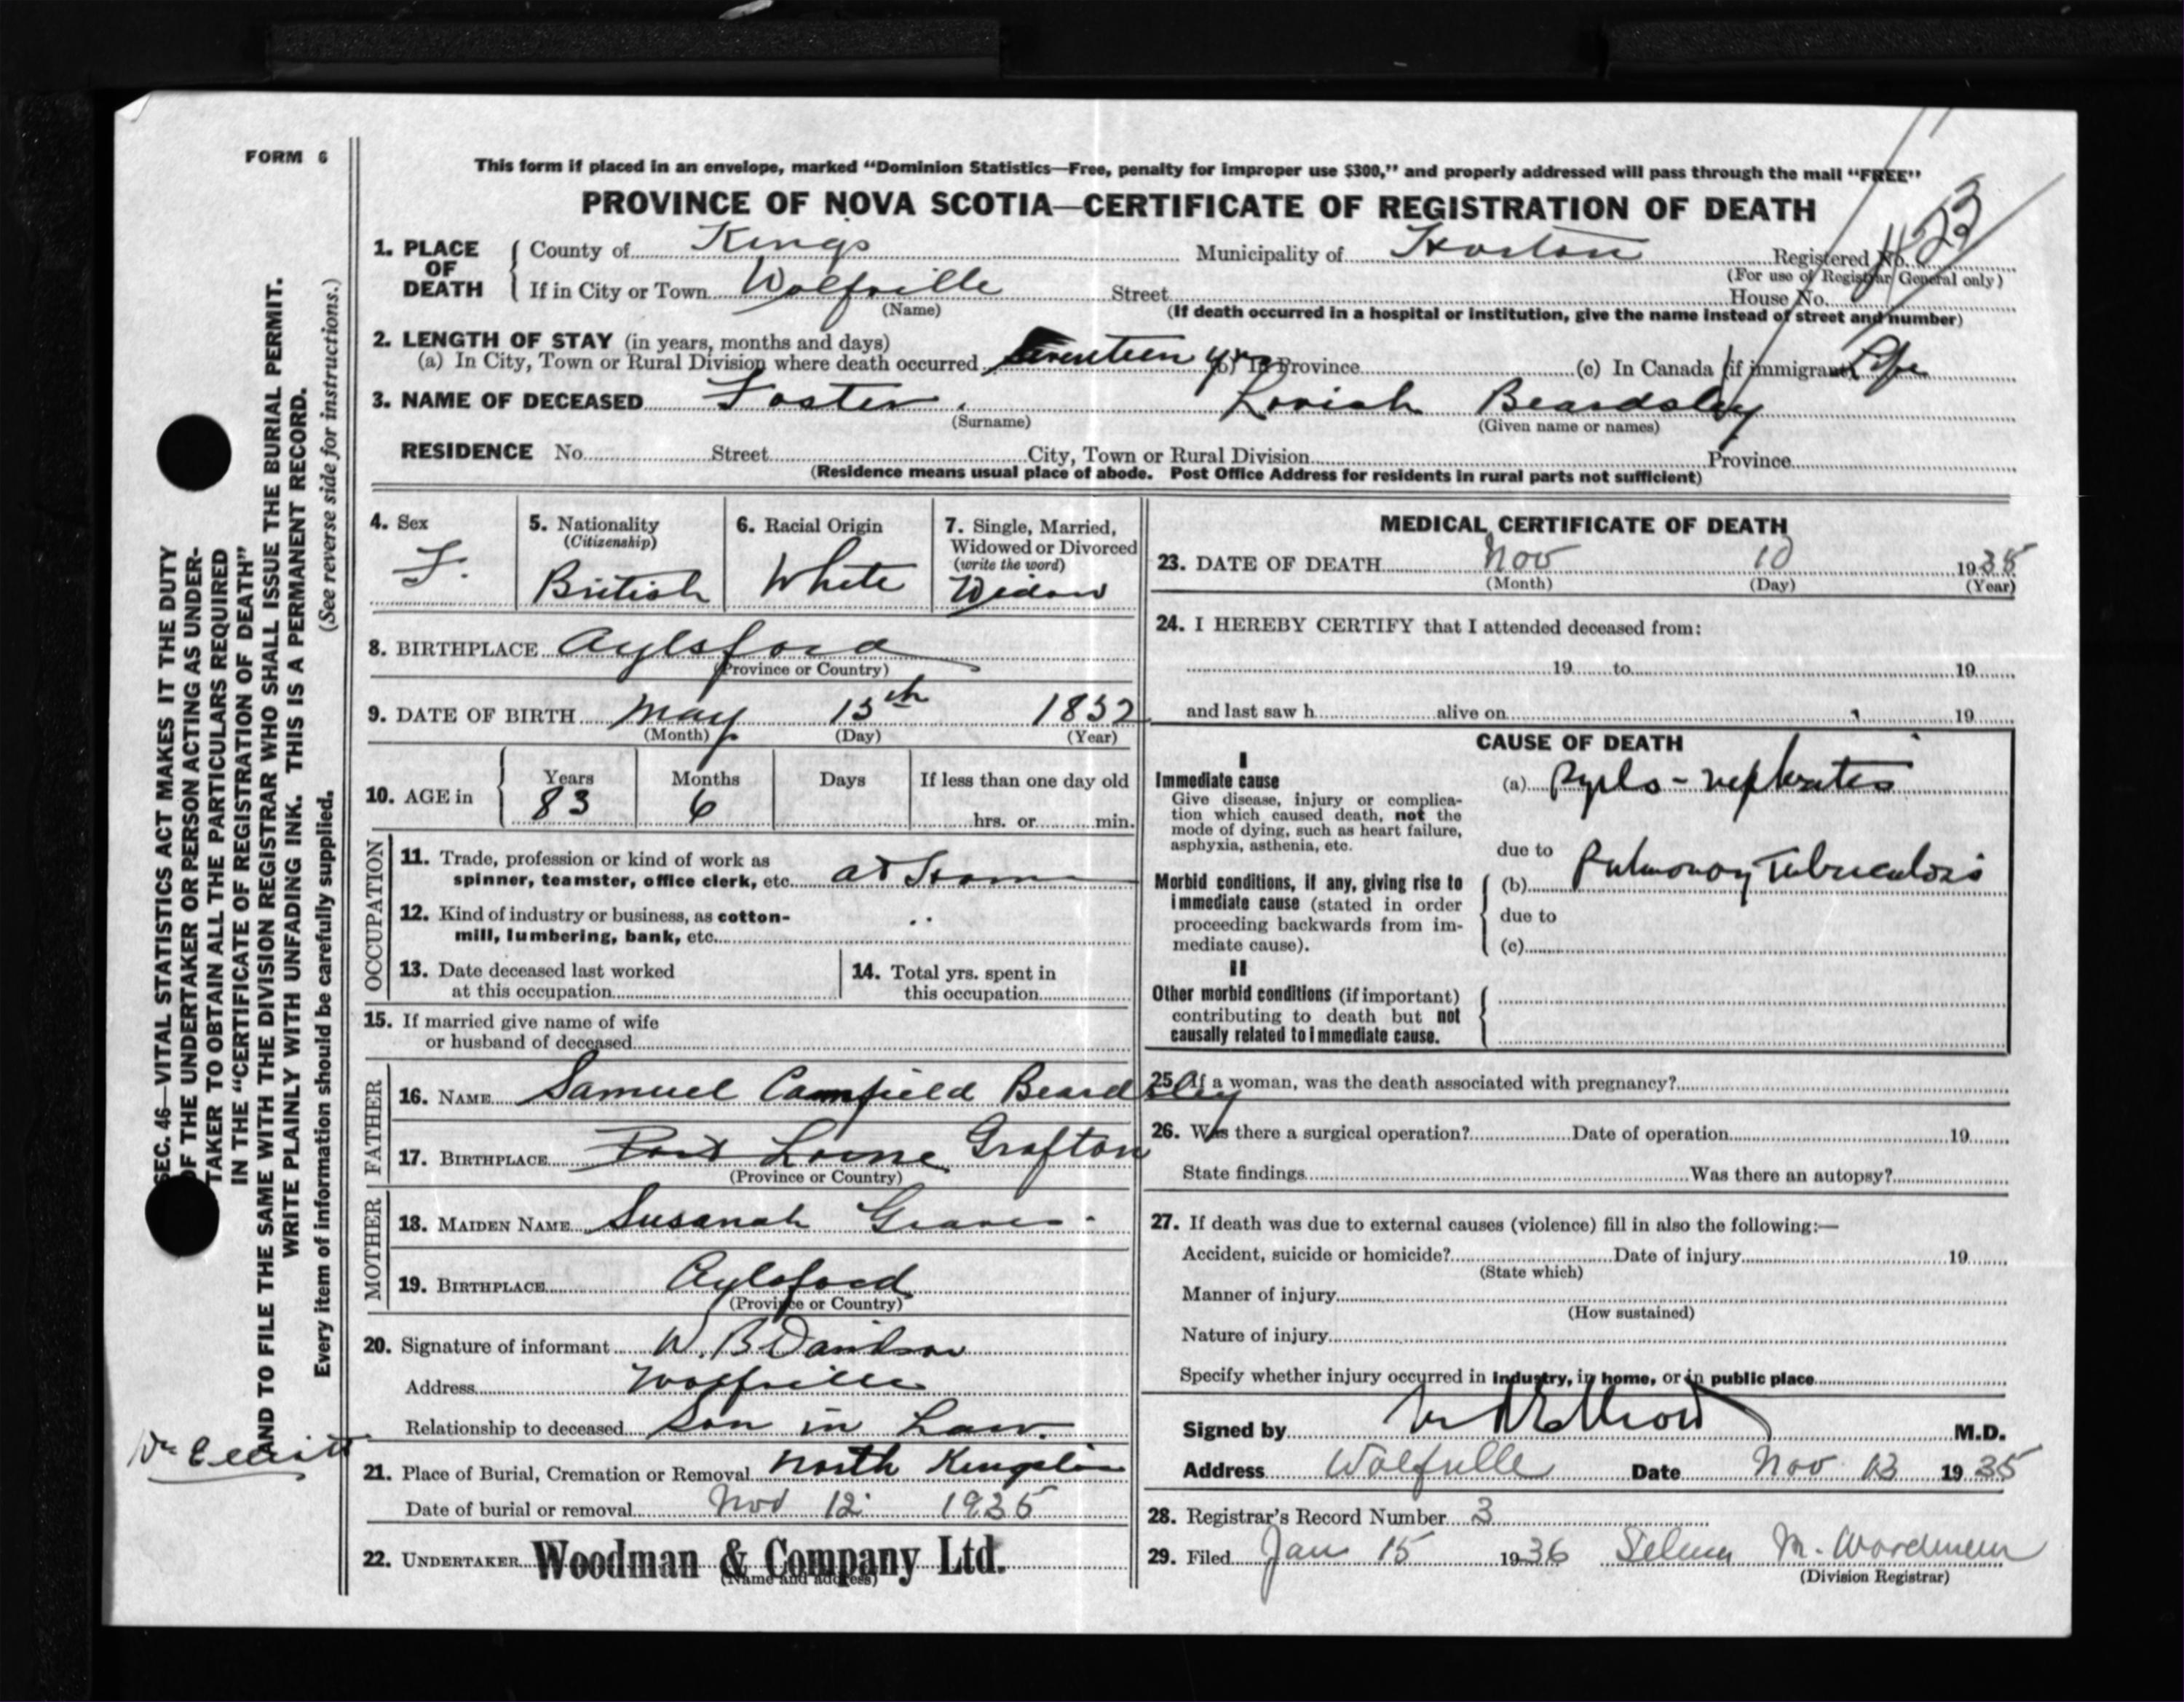 FORM 6
This form if placed in an envelope, marked "Dominion Statistics—Free, penalty for improper use $300," and properly addressed will pass through the mail "FREE"
PROVINCE OF NOVA SCOTIA—CERTIFICATE OF REGISTRATION OF DEATH
1. PLACE OF DEATH { County of Kings Municipality of Horton Registered No.
(For use of Registrar General only)
If in City or Town Wolfville Street House No.
(Name) (If death occurred in a hospital or institution, give the name instead of street and number)
2. LENGTH OF STAY (in years, months and days)
(a) In City, Town or Rural Division where death occurred Seventeen yrs (b) In Province (c) In Canada (if immigrant) Life
3. NAME OF DECEASED Foster Beardsley
(Surname) (Given name or names)
RESIDENCE No. Street City, Town or Rural Division Province
(Residence means usual place of abode. Post Office Address for residents in rural parts not sufficient)
4. Sex F.
5. Nationality (Citizenship) British
6. Racial Origin White
7. Single, Married, Widowed or Divorced (write the word) Widow
8. BIRTHPLACE Aylsford
(Province or Country)
9. DATE OF BIRTH May 13th 1832
(Month) (Day) (Year)
10. AGE in { Years 83 Months 6 Days If less than one day old
hrs. or min.
OCCUPATION
11. Trade, profession or kind of work as
spinner, teamster, office clerk, etc. at Home
12. Kind of industry or business, as cotton-
mill, lumbering, bank, etc. ..
13. Date deceased last worked
at this occupation
14. Total yrs. spent in
this occupation
15. If married give name of wife
or husband of deceased
FATHER
16. NAME Samuel Camfield Beardsley
17. BIRTHPLACE Port Lorne Grafton
(Province or Country)
MOTHER
18. MAIDEN NAME Susanah Graves
19. BIRTHPLACE Aylsford
(Province or Country)
20. Signature of informant W. B Davidson
Address Wolfville
Relationship to deceased Son in Law.
21. Place of Burial, Cremation or Removal North Kingston
Date of burial or removal Nov 12 1935
22. UNDERTAKER Woodman & Company Ltd.
(Name and address)
MEDICAL CERTIFICATE OF DEATH
23. DATE OF DEATH Nov 10 1935
(Month) (Day) (Year)
24. I HEREBY CERTIFY that I attended deceased from:
19 to 19
and last saw h alive on , 19
CAUSE OF DEATH
I
Immediate cause
Give disease, injury or complica-
tion which caused death, not the
mode of dying, such as heart failure,
asphyxia, asthenia, etc.
(a) Pyelo-nephritis
due to
Morbid conditions, if any, giving rise to
immediate cause (stated in order
proceeding backwards from im-
mediate cause).
(b) Pulmonary Tuberculosis
due to
(c)
II
Other morbid conditions (if important)
contributing to death but not
causally related to immediate cause.
25. If a woman, was the death associated with pregnancy?
26. Was there a surgical operation? Date of operation 19
State findings Was there an autopsy?
27. If death was due to external causes (violence) fill in also the following:—
Accident, suicide or homicide? Date of injury 19
(State which)
Manner of injury
(How sustained)
Nature of injury
Specify whether injury occurred in industry, in home, or in public place
Signed by M.D.
Address Wolfville Date Nov 13 1935
28. Registrar's Record Number 3
29. Filed Jan 15 1936 Selena M. Woodman
(Division Registrar)
SEC. 46—VITAL STATISTICS ACT MAKES IT THE DUTY
OF THE UNDERTAKER OR PERSON ACTING AS UNDER-
TAKER TO OBTAIN ALL THE PARTICULARS REQUIRED
IN THE "CERTIFICATE OF REGISTRATION OF DEATH"
AND TO FILE THE SAME WITH THE DIVISION REGISTRAR WHO SHALL ISSUE THE BURIAL PERMIT.
WRITE PLAINLY WITH UNFADING INK. THIS IS A PERMANENT RECORD.
Every item of information should be carefully supplied. (See reverse side for instructions.)
Dr Elliott